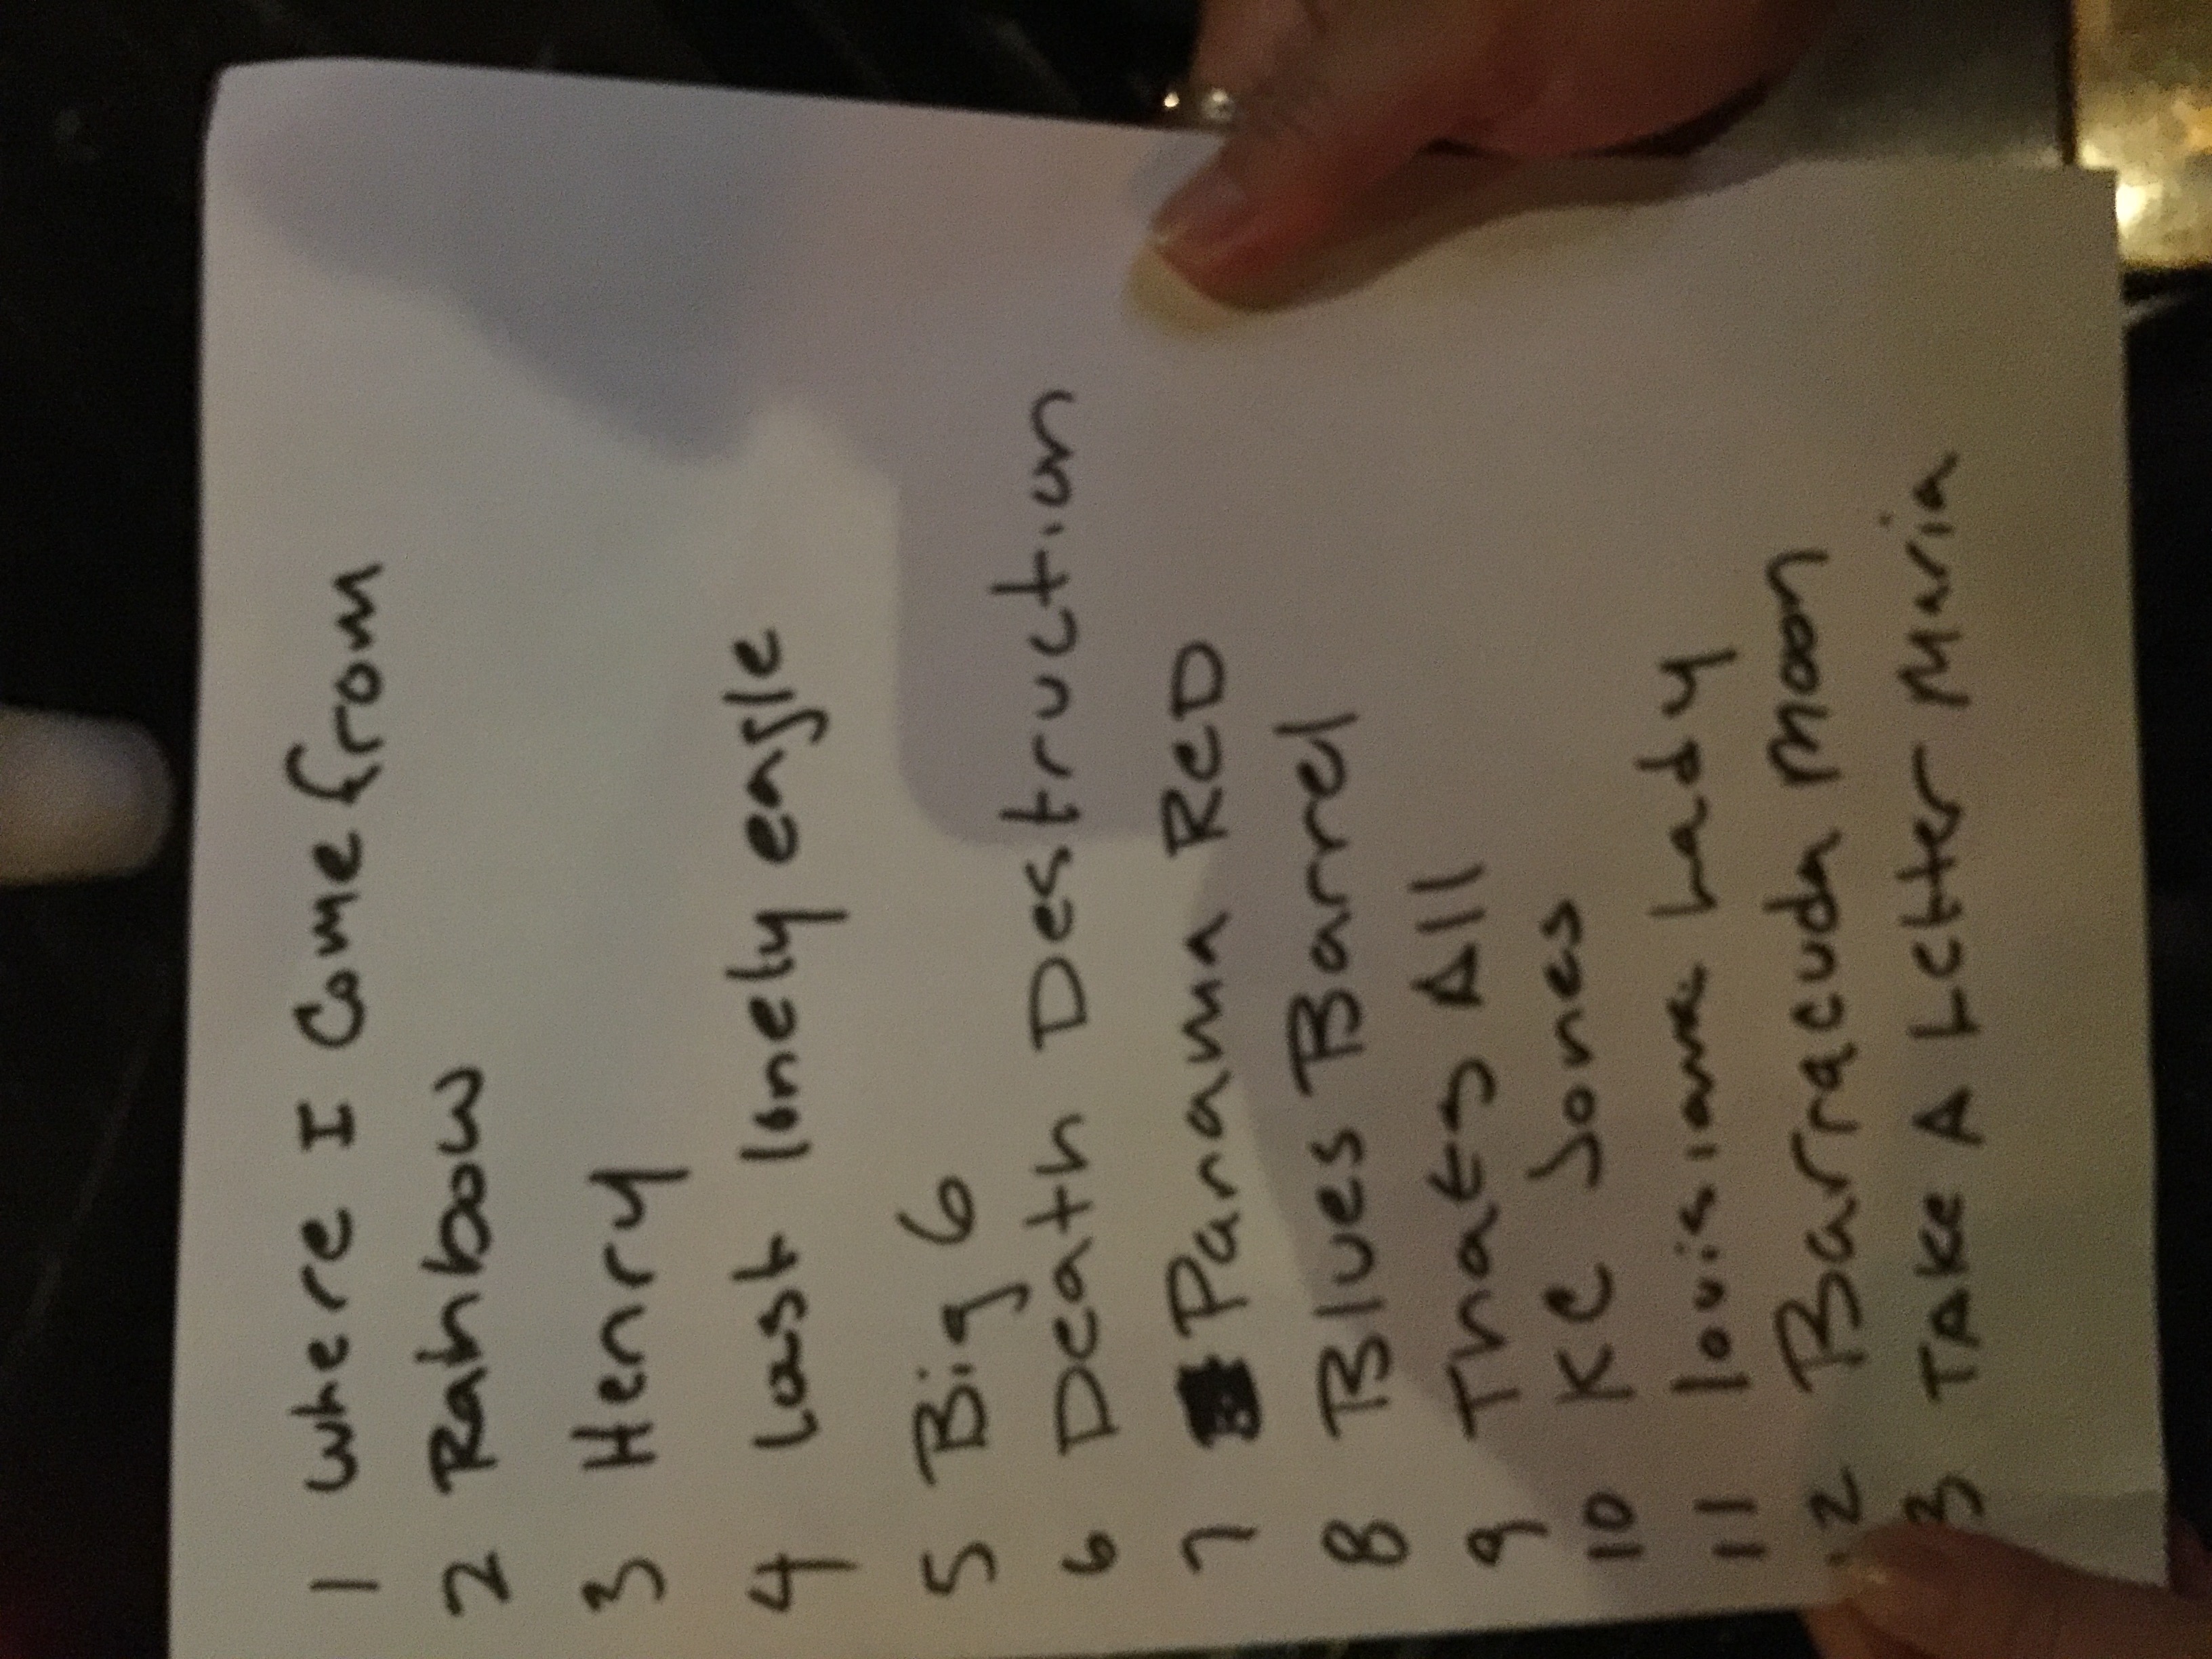 1 Where I Come from
2 Rainbow
3 Henry
4 last lonely eagle
5 Big 6
6 Death Destruction
7 Panama ReD
8 Blues Barrel
9 Thats All
10 KC Jones
11 louisiana Lady
12 Barracuda moon
3 TAke A Letter Maria